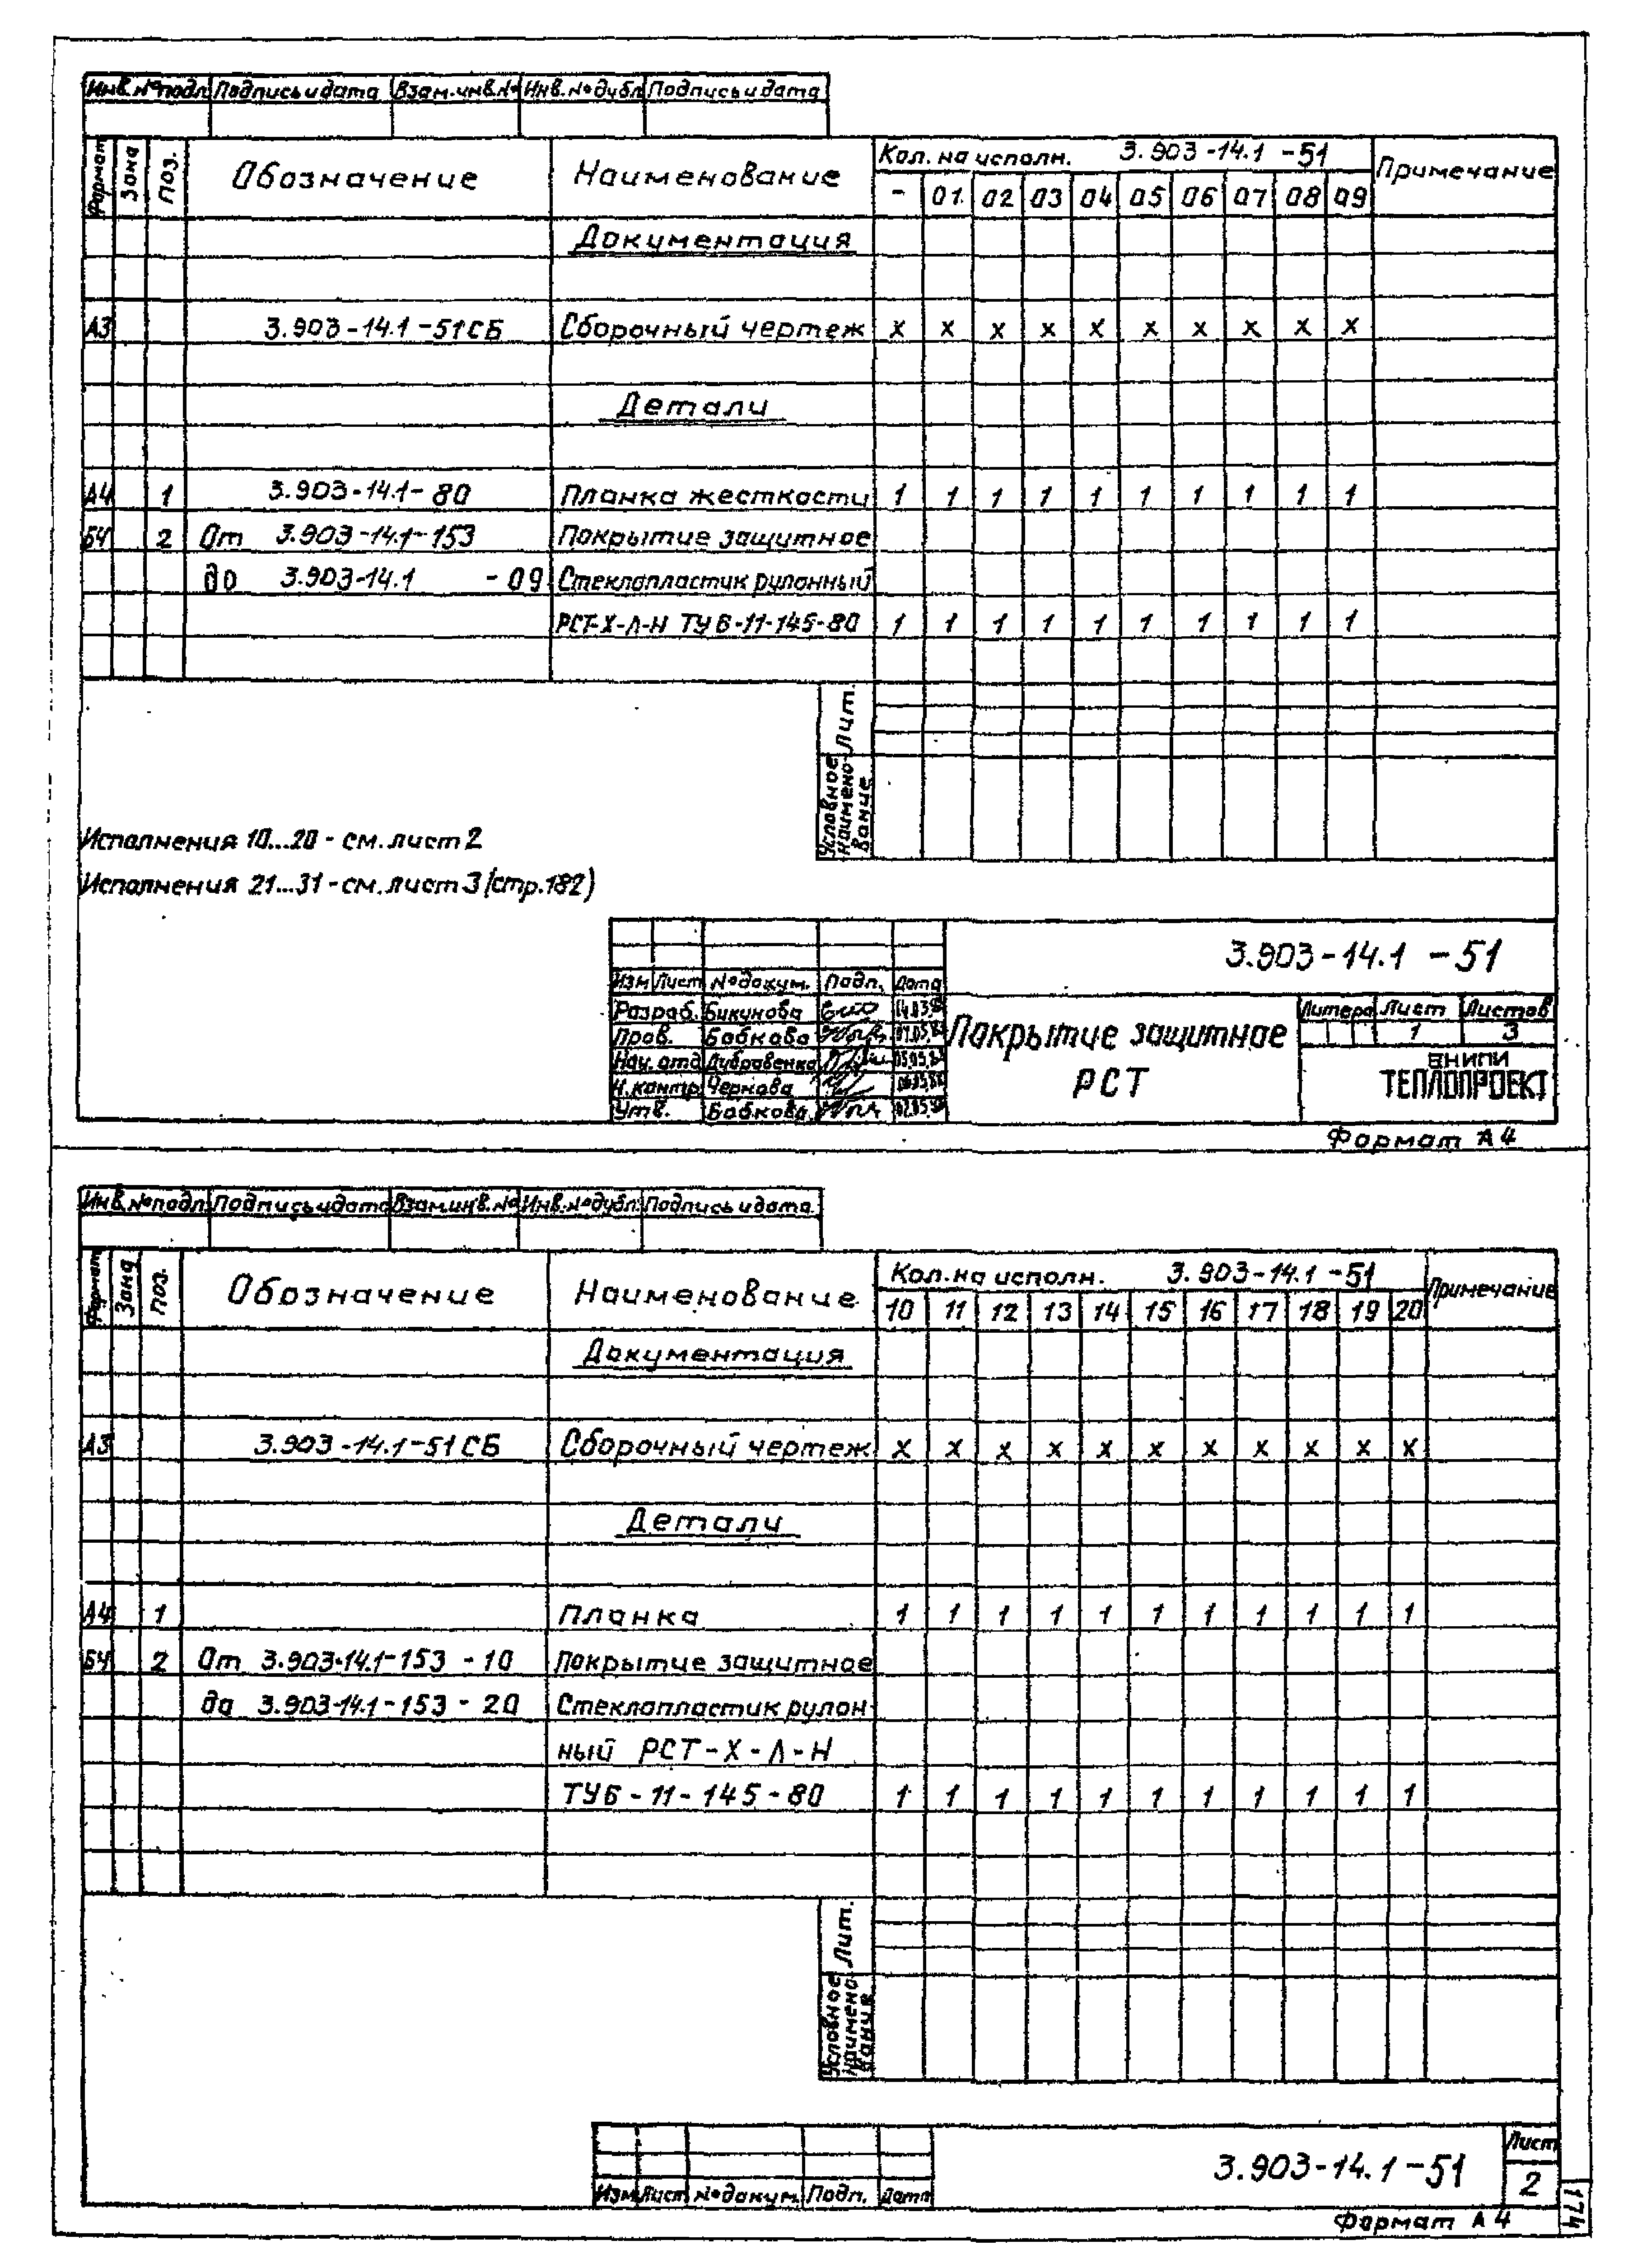 Инв.№подл. Подпись и дата Взам.инв.№ Инв.№дубл. Подпись и дата
Формат Зона Поз. Обозначение Наименование Кол. на исполн. 3.903-14.1 -51 Примечание
- 01 02 03 04 05 06 07 08 09
Документация
А3 3.903-14.1-51СБ Сборочный чертеж х х х х х х х х х х
Детали
А4 1 3.903-14.1-80 Планка жесткости 1 1 1 1 1 1 1 1 1 1
БЧ 2 От 3.903-14.1-153 Покрытие защитное
до 3.903-14.1 -09 Стеклопластик рулонный
РСТ-Х-Л-Н ТУ6-11-145-80 1 1 1 1 1 1 1 1 1 1
Лит.
Условное наименование
Исполнения 10...20 - см. лист 2
Исполнения 21...31 - см. лист 3 (стр.182)
3.903-14.1 -51
Изм Лист №докум. Подп. Дата
Разраб. Бикунова
Пров. Бобкова
Нач. отд Дубровенко
Н.контр Чернова
Утв. Бобкова
Покрытие защитное
РСТ
Литера Лист Листов
1 3
ВНИПИ
ТЕПЛОПРОЕКТ
Формат А4
Инв.№подл. Подпись и дата Взам.инв.№ Инв.№дубл. Подпись и дата
Формат Зона Поз. Обозначение Наименование Кол. на исполн. 3.903-14.1 -51 Примечание
10 11 12 13 14 15 16 17 18 19 20
Документация
А3 3.903-14.1-51СБ Сборочный чертеж х х х х х х х х х х х
Детали
А4 1 Планка 1 1 1 1 1 1 1 1 1 1 1
БЧ 2 От 3.903-14.1-153 - 10 Покрытие защитное
до 3.903-14.1-153 - 20 Стеклопластик рулон-
ный РСТ-Х-Л-Н
ТУ6-11-145-80 1 1 1 1 1 1 1 1 1 1 1
Лит.
Условное наименование
3.903-14.1-51
Лист
2
Изм Лист №докум. Подп. Дата
Формат А4
174